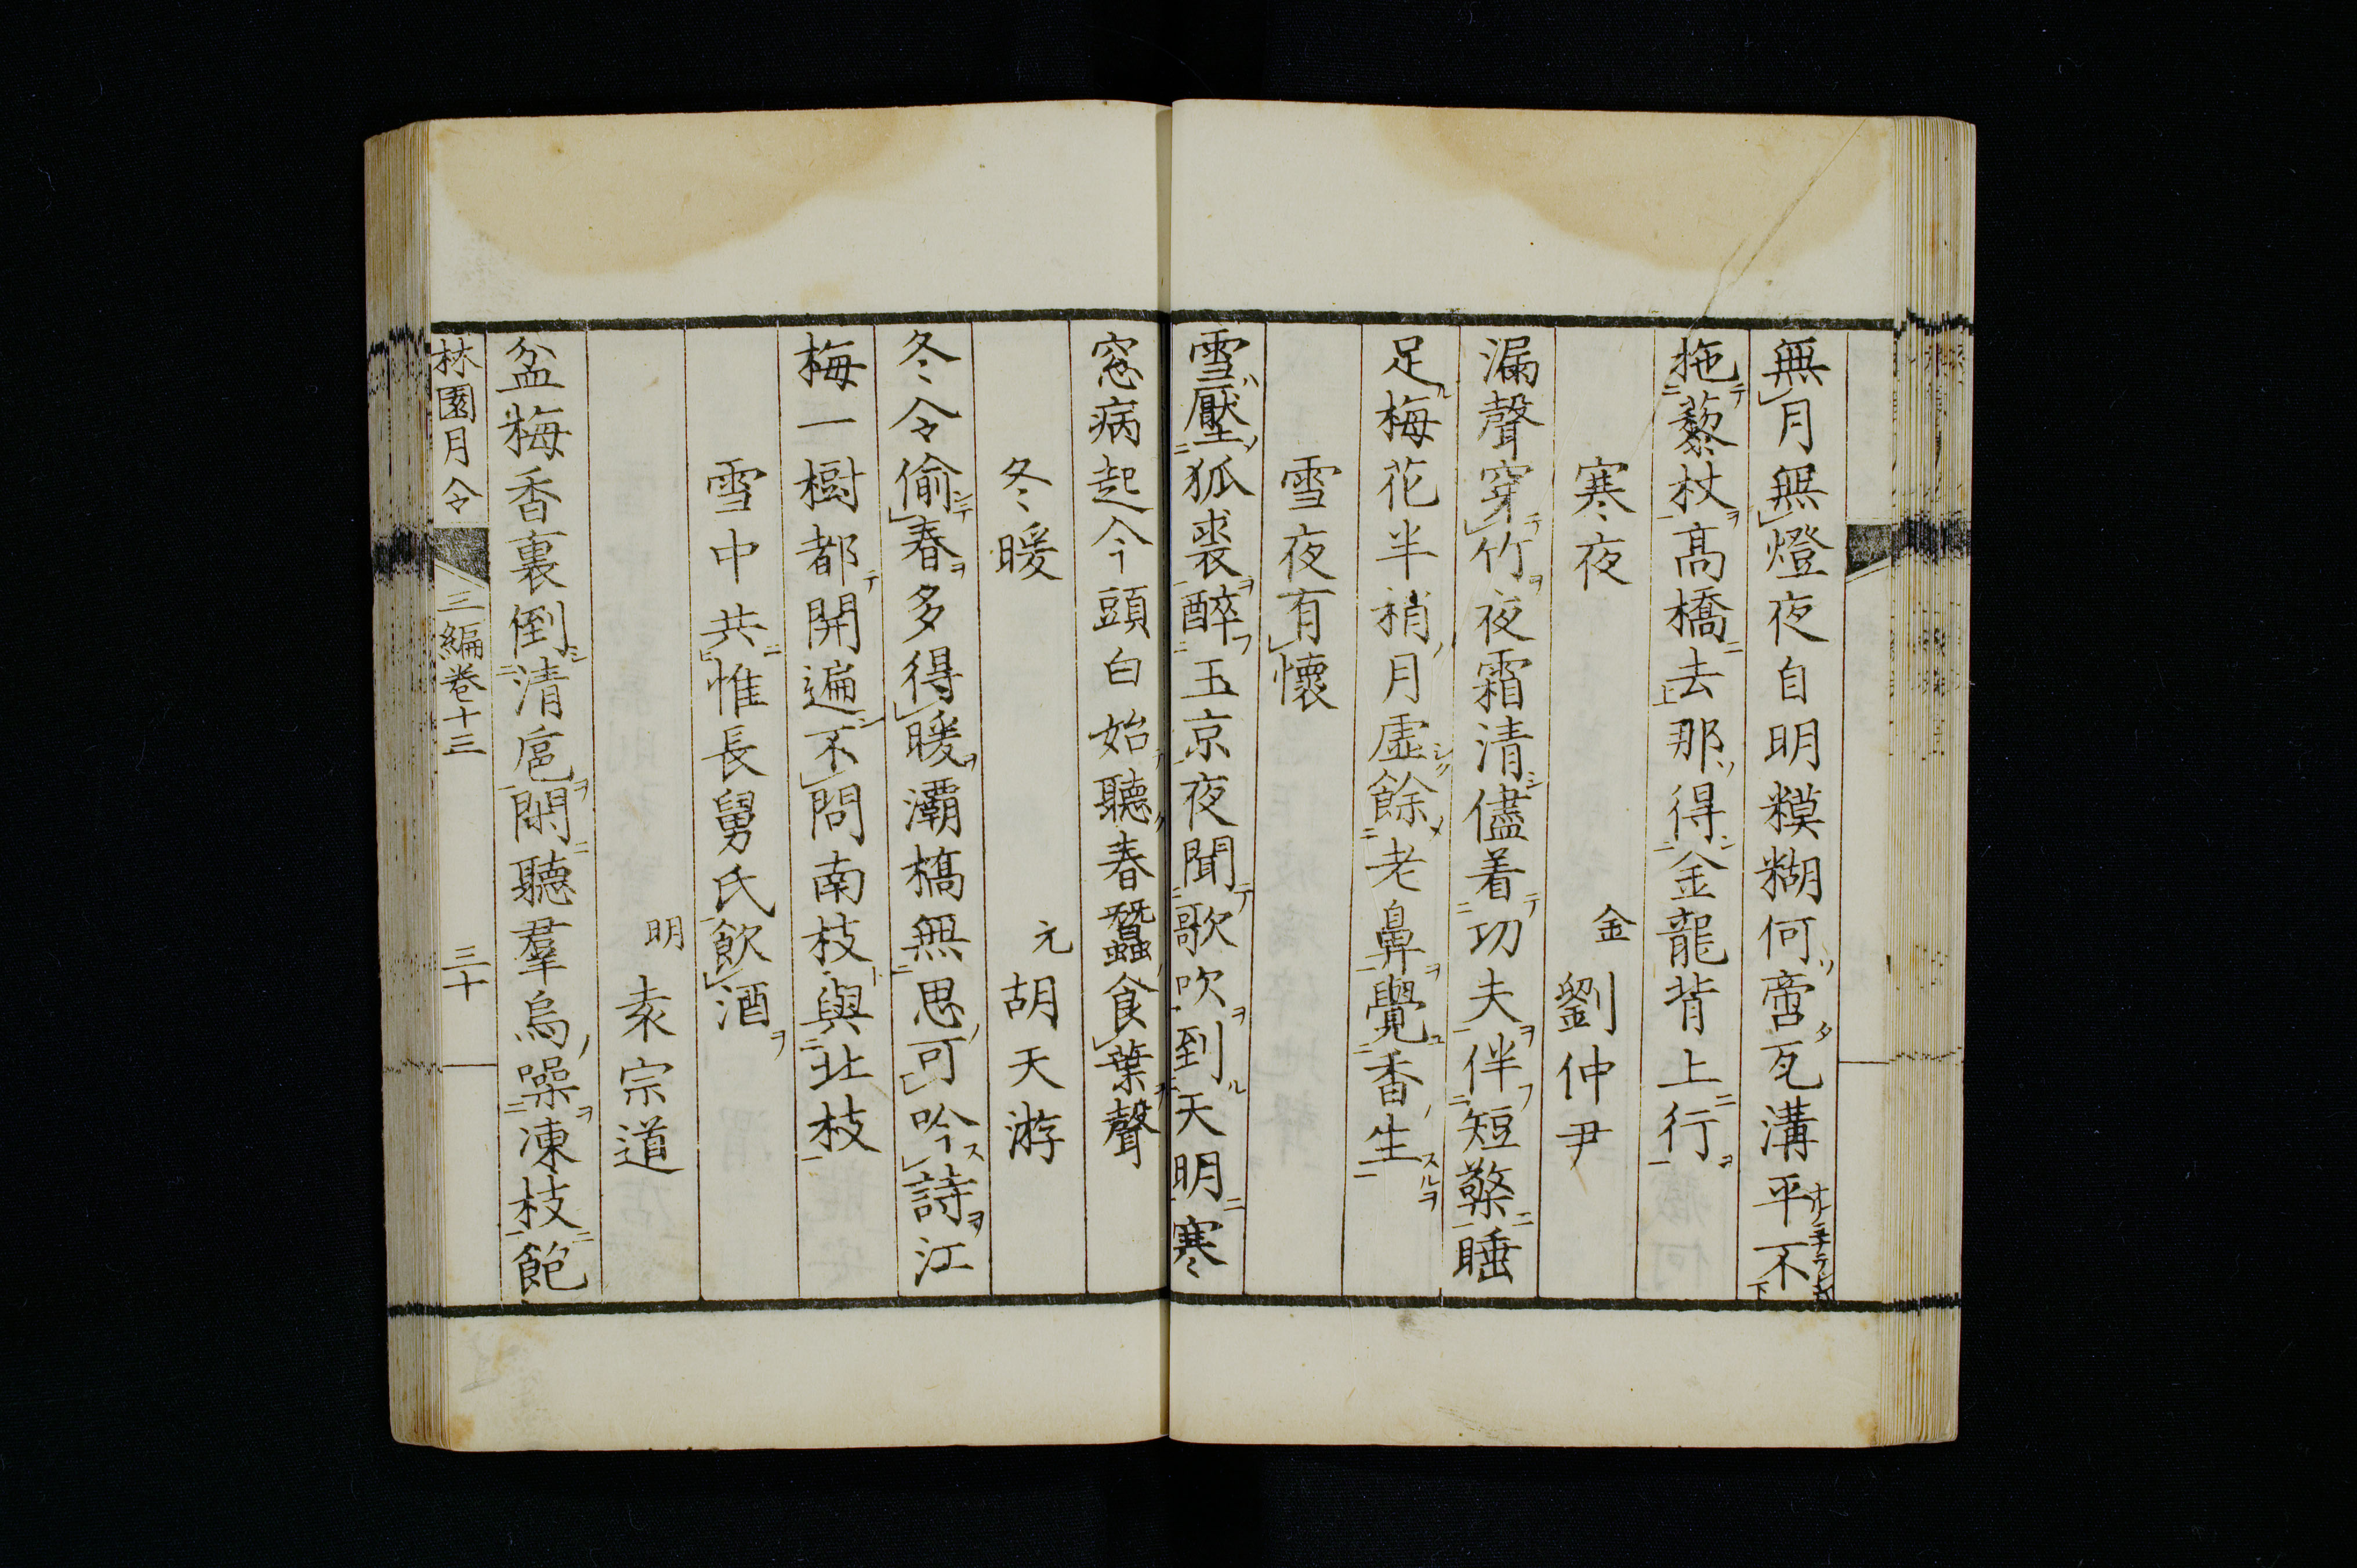 無月無燈夜自明糢糊何啻瓦溝平不
拖藜杖髙橋去那得金龍背上行
寒夜
金 劉仲尹
漏聲穿竹夜霜清儘着功夫伴短檠睡
足梅花半梢月虛餘老鼻覺香生
雪夜有懷
雪壓狐裘醉玉京夜聞歌吹到天明寒
窓病起今頭白始聽春蠶食葉聲
冬暖
元 胡天游
冬令偷春多得暖灞橋無思可吟詩江
梅一樹都開遍不問南枝與北枝
雪中共惟長舅氏飲酒
明 袁宗道
盆梅香裏倒清巵閑聽羣烏噪凍枝飽
林園月令 三編卷十三 三十